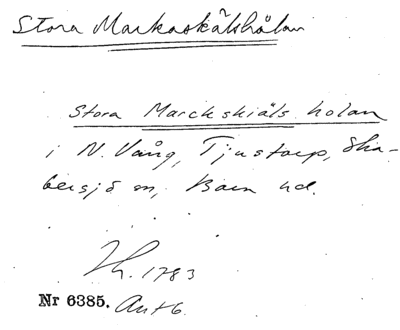 Stora Markaskälshålan
Stora Marckskiäls holan
i N. Vång, Tjustorp, Ska-
bersjö sn, Bara hd.
Lh. 1783
Nr 6385. Akt 6.